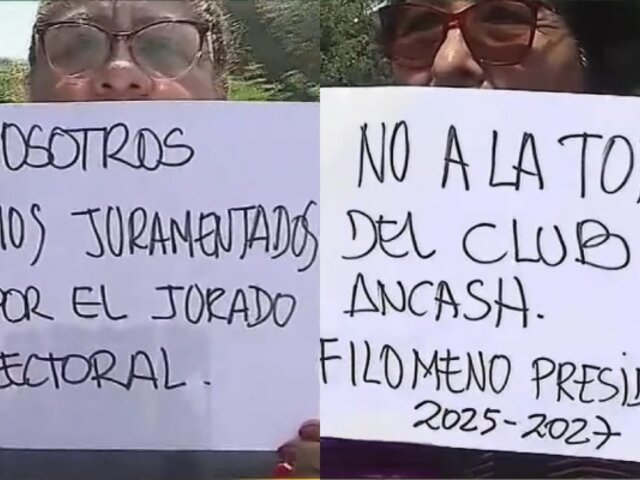 OSOTROS
MOS JURAMENTADOS
POR EL JURADO
ECTORAL.
NO A LA TO
DEL CLUB
ANCASH.
FILOMENO PRESID
2025-2027